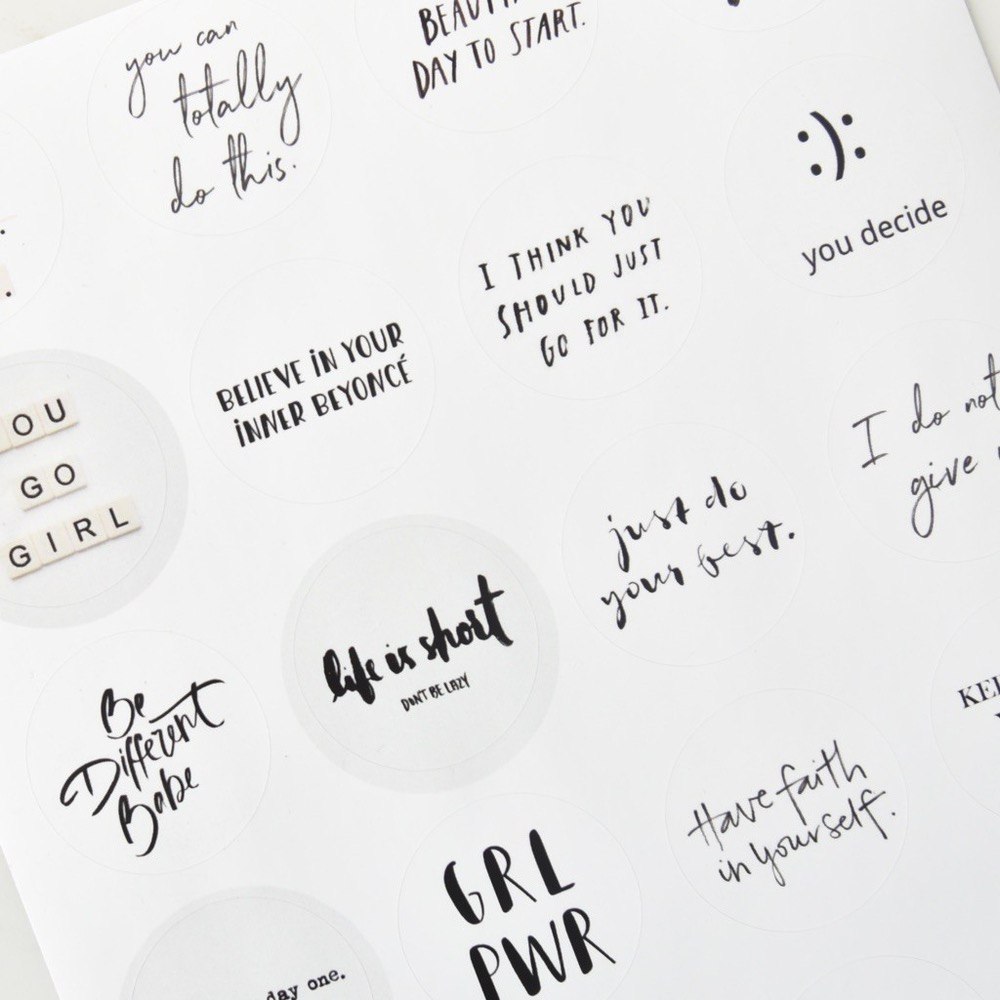 you can
totally
do this.
DAY TO START.
:):
you decide
I THINK YOU
SHOULD JUST
GO FOR IT.
BELIEVE IN YOUR
INNER BEYONCÉ
OU
GO
GIRL
I do not
give
just do
your best.
life is short
DON'T BE LAZY
Be
Different
Babe
Have faith
in yourself.
GRL
PWR
day one.